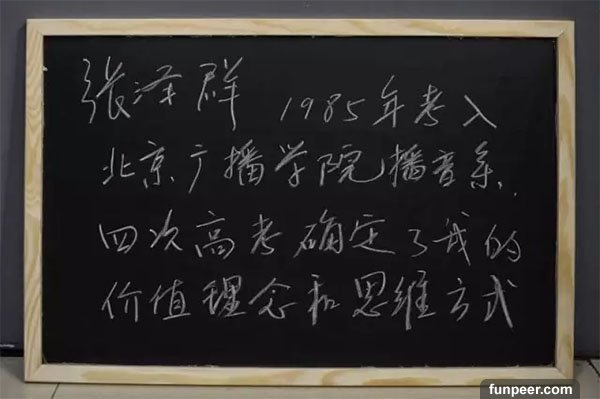 张泽群 1985年考入
北京广播学院播音系.
四次高考确定了我的
价值理念和思维方式
funpeer.com